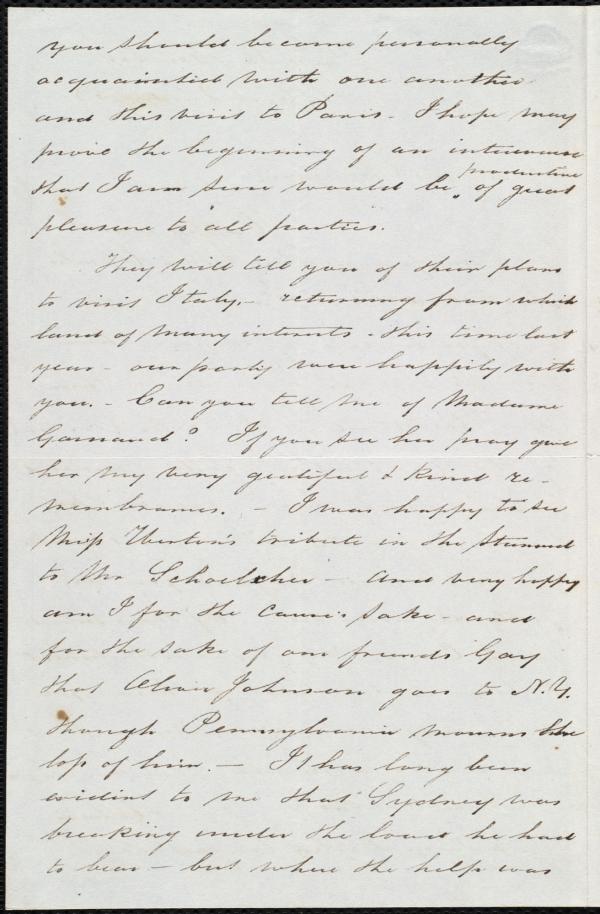 you should become personally
acquainted with one another
and this visit to Paris - I hope may
prove the beginning of an intercourse
productive
that I am sure would be of great
pleasure to all parties.
They will tell you of their plans
to visit Italy, - returning from which
land of many interests - this time last
year - our party were happily with
you. - Can you tell me of Madame
If you see her pray give
her my very grateful & kind re-
membrances. - I was happy to see
Miss Weston's tribute in the Standard
to Mr Schoelcher - and very happy
am I for the cause's sake - and
for the sake of our friends Gay
that Oliver Johnson goes to N.Y.
though Pennsylvania mourns the
loss of him. - It has long been
evident to me that Sydney was
breaking under the load he had
to bear - but where the help was